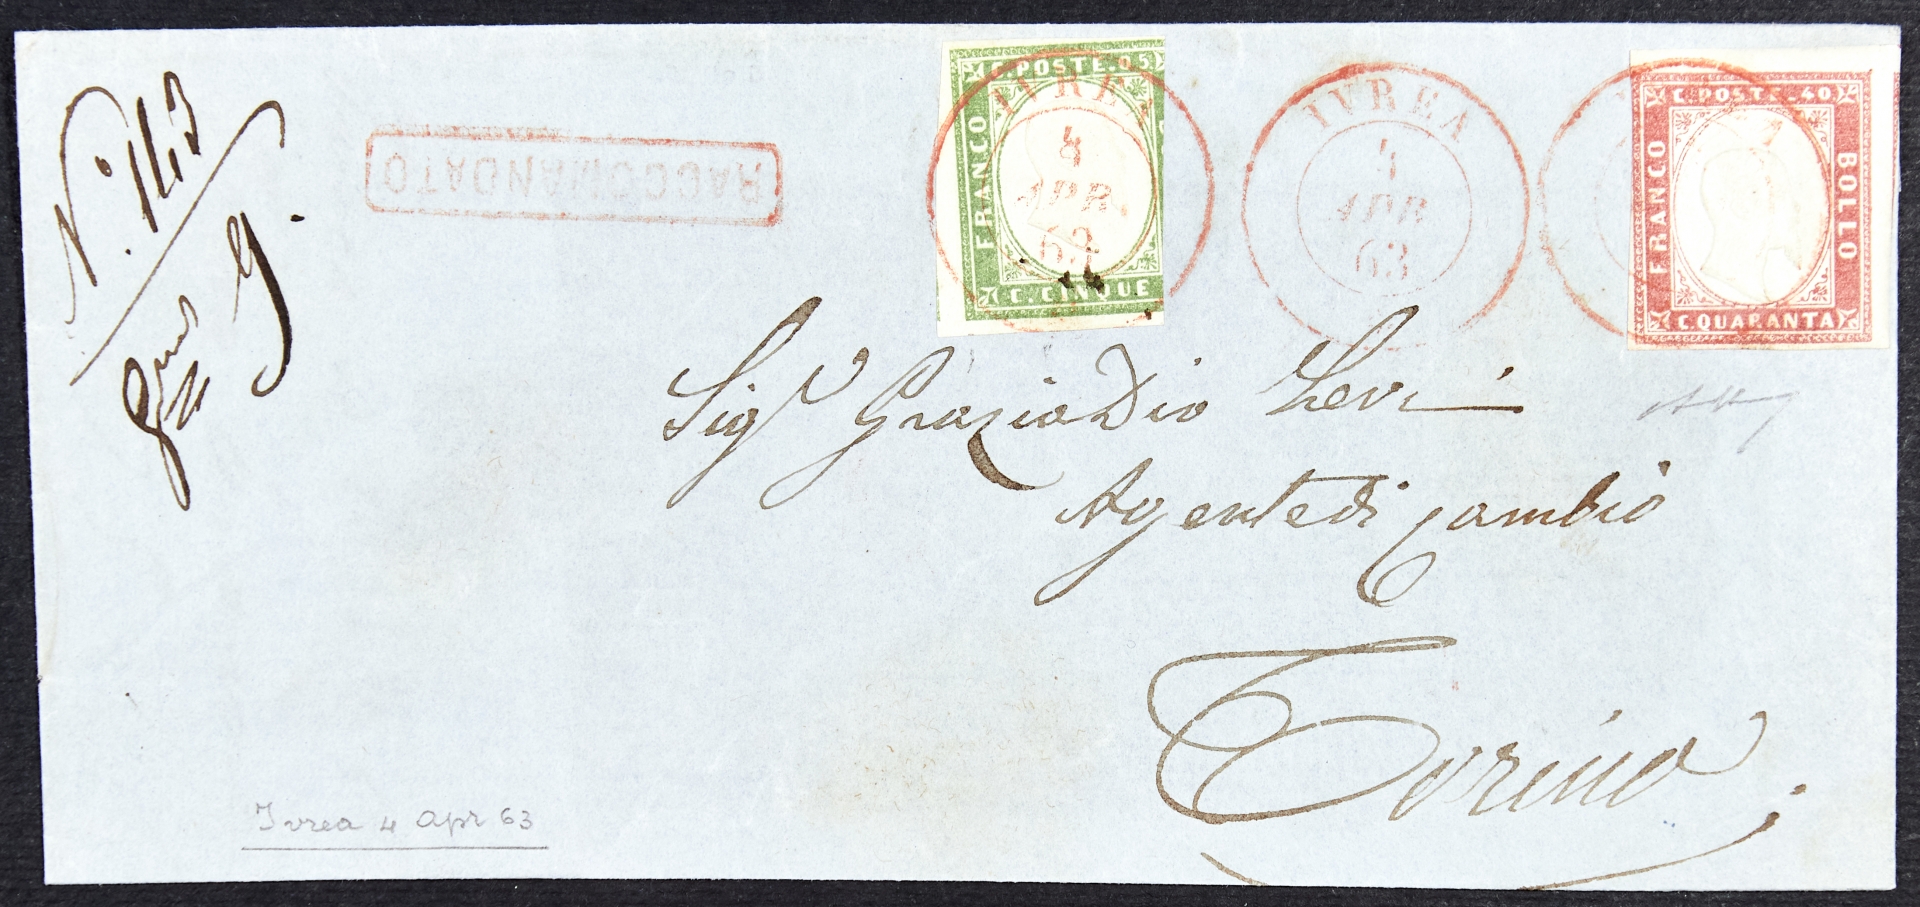 N.º 1143
G.
RACCOMANDATO
C. POSTE. 05
FRANCO
C. CINQUE
IVREA
4
APR
63
IVREA
4
APR
63
C. POSTE. 40
FRANCO
BOLLO
C. QUARANTA
Sigr GraziaDio Levi
Agente di Cambio
Torino
Ivrea 4 Apr 63